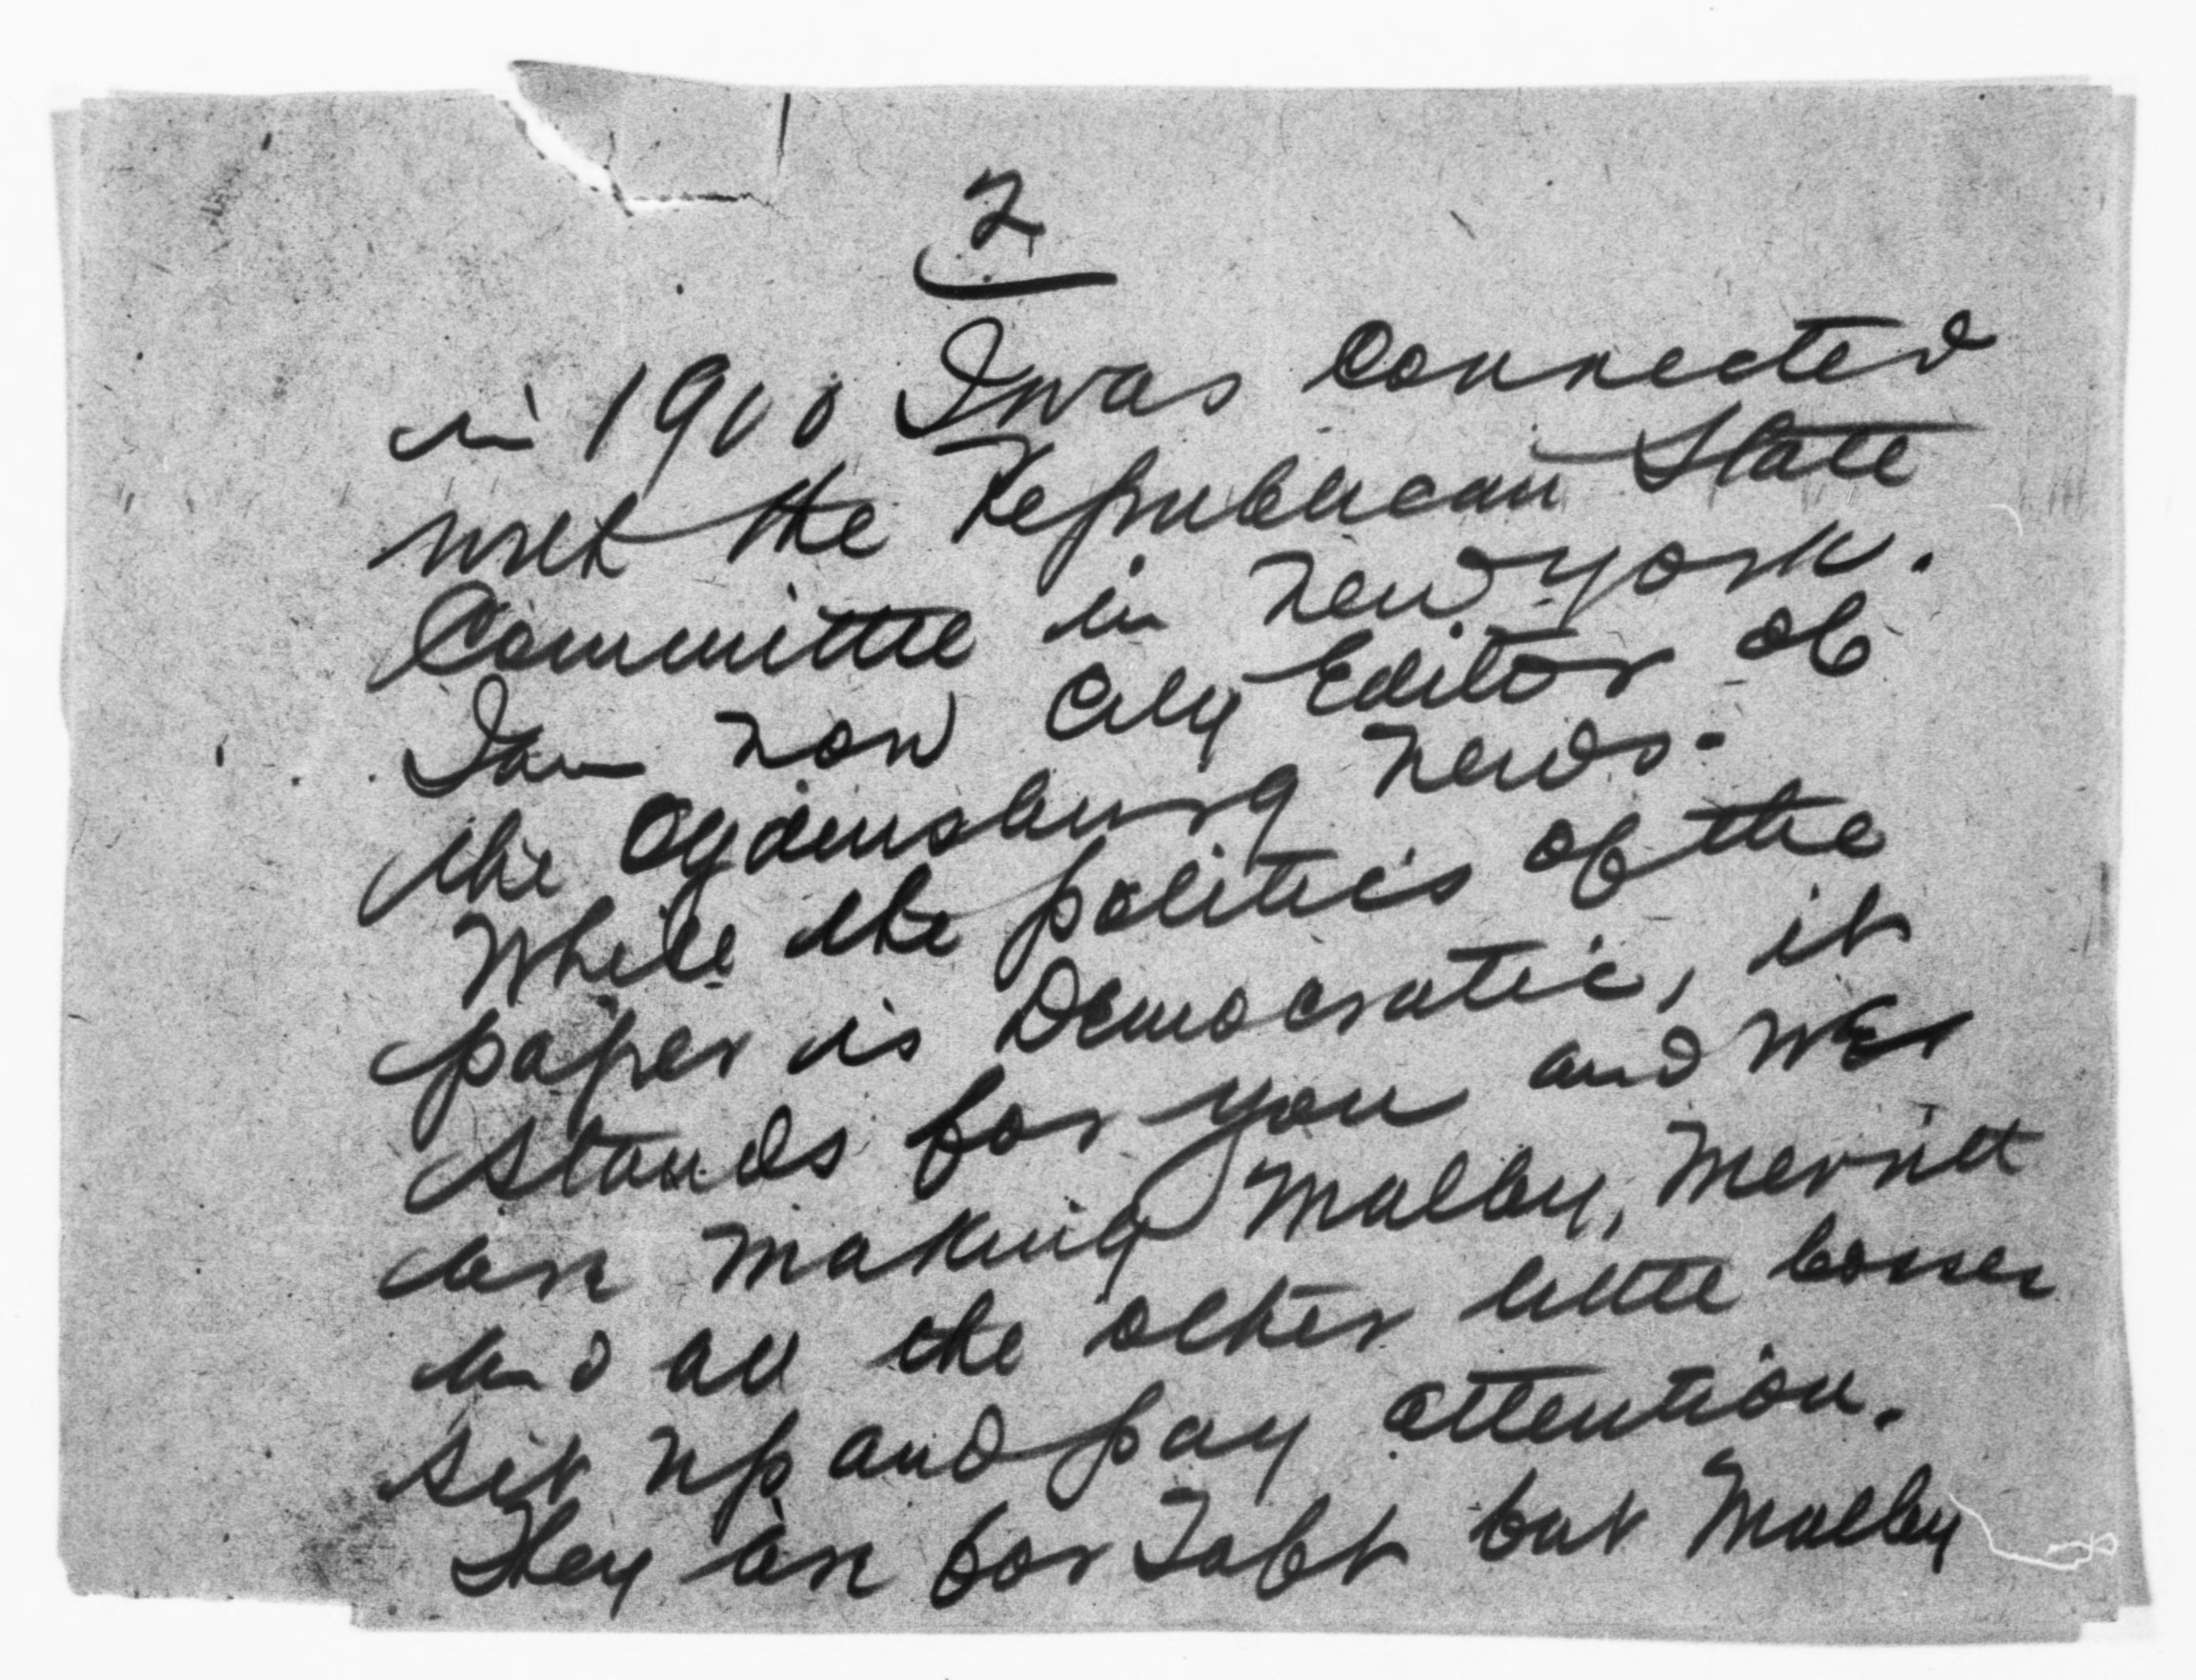 2
in 1900 I was connected
with the Republican State
Committee in New York.
I am now City Editor of
the Ogdensburg News.
While the politics of the
paper is Democratic, it
stands for you and we
are making Malby, Merritt
and all the other little bosses
sit up and pay attention.
They are for Taft but Malby